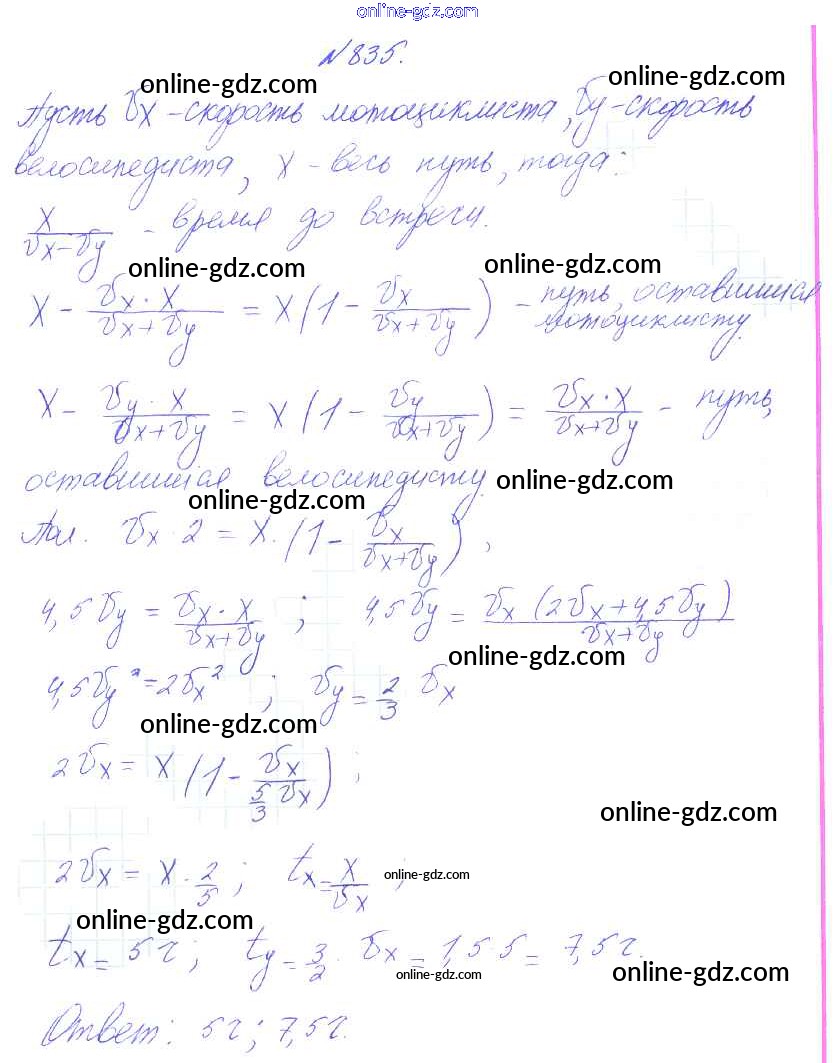 online-gdz.com
№835.
online-gdz.com online-gdz.com
Пусть Vx - скорость мотоциклиста, Vy - скорость
велосипедиста, x - весь путь, тогда:
x/(Vx - Vy) - время до встречи.
online-gdz.com online-gdz.com
x - (Vx · x)/(Vx + Vy) = x(1 - Vx/(Vx + Vy)) - путь, оставшийся мотоциклисту.
x - (Vy · x)/(Vx + Vy) = x(1 - Vy/(Vx + Vy)) = (Vx · x)/(Vx + Vy) - путь,
оставшийся велосипедисту.
online-gdz.com online-gdz.com
Vx · 2 = x · (1 - Vx/(Vx + Vy)),
4,5Vy = (Vx · x)/(Vx + Vy); 4,5Vy = Vx(2Vx + 4,5Vy)/(Vx + Vy)
online-gdz.com
4,5Vy² = 2Vx²; Vy = 2/3 Vx
online-gdz.com
2Vx = x(1 - Vx/(5/3 Vx));
online-gdz.com
2Vx = x · 2/5; tx = x/Vx; online-gdz.com
online-gdz.com
tx = 5ч; ty = 3/2 · Vx = 1,5 · 5 = 7,5ч.
online-gdz.com online-gdz.com
Ответ: 5ч; 7,5ч.